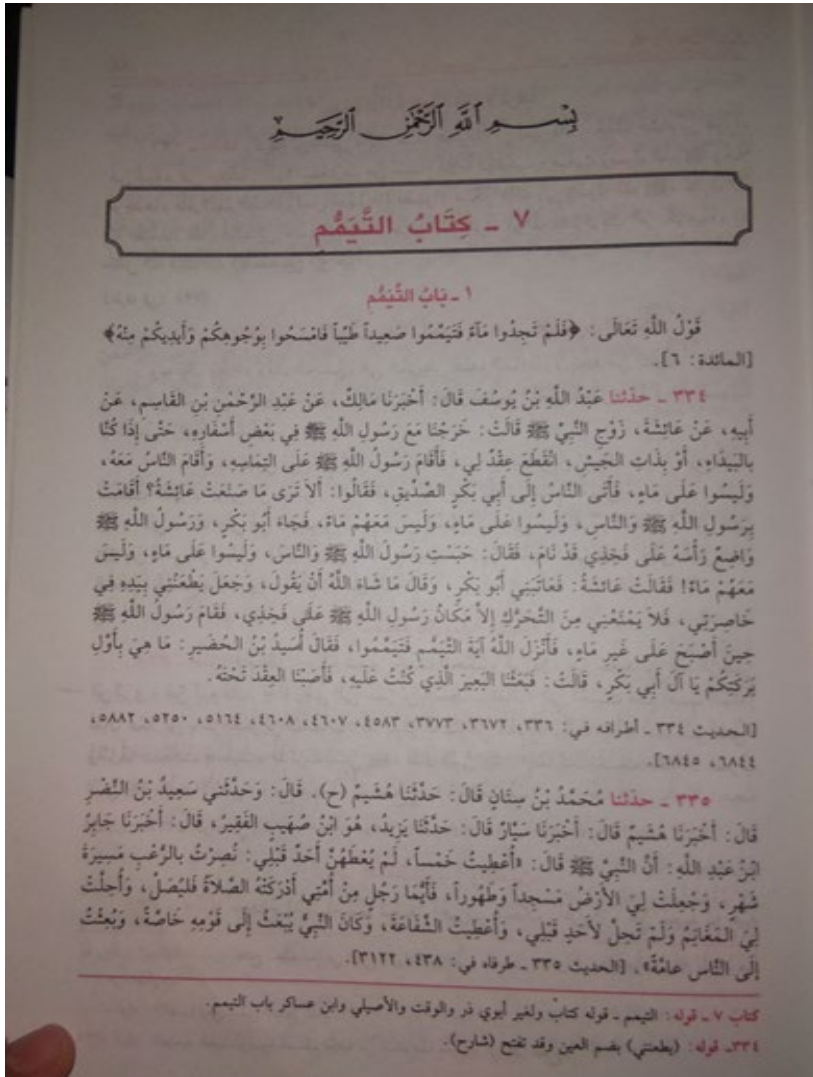 بِسْمِ اللَّهِ الرَّحْمَنِ الرَّحِيمِ
٧ - كِتَابُ التَّيَمُّمِ
١ - بَابُ التَّيَمُّمِ
قَوْلُ اللَّهِ تَعَالَى: ﴿فَلَمْ تَجِدُوا مَاءً فَتَيَمَّمُوا صَعِيداً طَيِّباً فَامْسَحُوا بِوُجُوهِكُمْ وَأَيْدِيكُمْ مِنْهُ﴾
[المائدة: ٦].
٣٣٤ - حدّثنا عَبْدُ اللَّهِ بْنُ يُوسُفَ قَالَ: أَخْبَرَنَا مَالِكٌ، عَنْ عَبْدِ الرَّحْمٰنِ بْنِ القَاسِمِ، عَنْ
أَبِيهِ، عَنْ عَائِشَةَ، زَوْجِ النَّبِيِّ ﷺ قَالَتْ: خَرَجْنَا مَعَ رَسُولِ اللَّهِ ﷺ فِي بَعْضِ أَسْفَارِهِ، حَتَّى إِذَا كُنَّا
بِالبَيْدَاءِ، أَوْ بِذَاتِ الجَيْشِ، انْقَطَعَ عِقْدٌ لِي، فَأَقَامَ رَسُولُ اللَّهِ ﷺ عَلَى التِمَاسِهِ، وَأَقَامَ النَّاسُ مَعَهُ،
وَلَيْسُوا عَلَى مَاءٍ، فَأَتَى النَّاسُ إِلَى أَبِي بَكْرٍ الصِّدِّيقِ، فَقَالُوا: أَلاَ تَرَى مَا صَنَعَتْ عَائِشَةُ؟ أَقَامَتْ
بِرَسُولِ اللَّهِ ﷺ وَالنَّاسِ، وَلَيْسُوا عَلَى مَاءٍ، وَلَيْسَ مَعَهُمْ مَاءٌ، فَجَاءَ أَبُو بَكْرٍ، وَرَسُولُ اللَّهِ ﷺ
وَاضِعٌ رَأْسَهُ عَلَى فَخِذِي قَدْ نَامَ، فَقَالَ: حَبَسْتِ رَسُولَ اللَّهِ ﷺ وَالنَّاسَ، وَلَيْسُوا عَلَى مَاءٍ، وَلَيْسَ
مَعَهُمْ مَاءٌ! فَقَالَتْ عَائِشَةُ: فَعَاتَبَنِي أَبُو بَكْرٍ، وَقَالَ مَا شَاءَ اللَّهُ أَنْ يَقُولَ، وَجَعَلَ يَطْعَنُنِي بِيَدِهِ فِي
خَاصِرَتِي، فَلاَ يَمْنَعُنِي مِنَ التَّحَرُّكِ إِلاَّ مَكَانُ رَسُولِ اللَّهِ ﷺ عَلَى فَخِذِي، فَقَامَ رَسُولُ اللَّهِ ﷺ
حِينَ أَصْبَحَ عَلَى غَيْرِ مَاءٍ، فَأَنْزَلَ اللَّهُ آيَةَ التَّيَمُّمِ فَتَيَمَّمُوا، فَقَالَ أُسَيْدُ بْنُ الحُضَيرِ: مَا هِيَ بِأَوَّلِ
بَرَكَتِكُمْ يَا آلَ أَبِي بَكْرٍ، قَالَتْ: فَبَعَثْنَا البَعِيرَ الَّذِي كُنْتُ عَلَيهِ، فَأَصَبْنَا العِقْدَ تَحْتَهُ.
[الحديث ٣٣٤ - أطرافه في: ٣٣٦، ٣٦٧٢، ٣٧٧٣، ٤٥٨٣، ٤٦٠٧، ٤٦٠٨، ٥١٦٤، ٥٢٥٠، ٥٨٨٢،
٦٨٤٤، ٦٨٤٥].
٣٣٥ - حدّثنا مُحَمَّدُ بْنُ سِنَانٍ قَالَ: حَدَّثَنَا هُشَيمٌ (ح). قَالَ: وَحَدَّثَني سَعِيدُ بْنُ النَّضْرِ
قَالَ: أَخْبَرَنَا هُشَيمٌ قَالَ: أَخْبَرَنَا سَيَّارٌ قَالَ: حَدَّثَنَا يَزِيدُ، هُوَ ابْنُ صُهَيبٍ الفَقِيرُ، قَالَ: أَخْبَرَنَا جَابِرُ
ابْنُ عَبْدِ اللَّهِ: أَنَّ النَّبِيَّ ﷺ قَالَ: «أُعْطِيتُ خَمْساً، لَمْ يُعْطَهُنَّ أَحَدٌ قَبْلِي: نُصِرْتُ بِالرُّعْبِ مَسِيرَةَ
شَهْرٍ، وَجُعِلَتْ لِيَ الأَرْضُ مَسْجِداً وَطَهُوراً، فَأَيُّمَا رَجُلٍ مِنْ أُمَّتِي أَدْرَكَتْهُ الصَّلاَةُ فَليُصَلِّ، وَأُحِلَّتْ
لِيَ المَغَانِمُ وَلَمْ تَحِلَّ لأَحَدٍ قَبْلِي، وَأُعْطِيتُ الشَّفَاعَةَ، وَكَانَ النَّبِيُّ يُبْعَثُ إِلَى قَوْمِهِ خَاصَّةً، وَبُعِثْتُ
إِلَى النَّاسِ عامَّةً». [الحديث ٣٣٥ - طرفاه في: ٤٣٨، ٣١٢٢].
كتاب ٧ - قوله: التيمم - قوله كتابٌ ولغير أبوي ذر والوقت والأصيلي وابن عساكر باب التيمم.
٣٣٤- قوله: (يطعنني) بضم العين وقد تفتح (شارح).